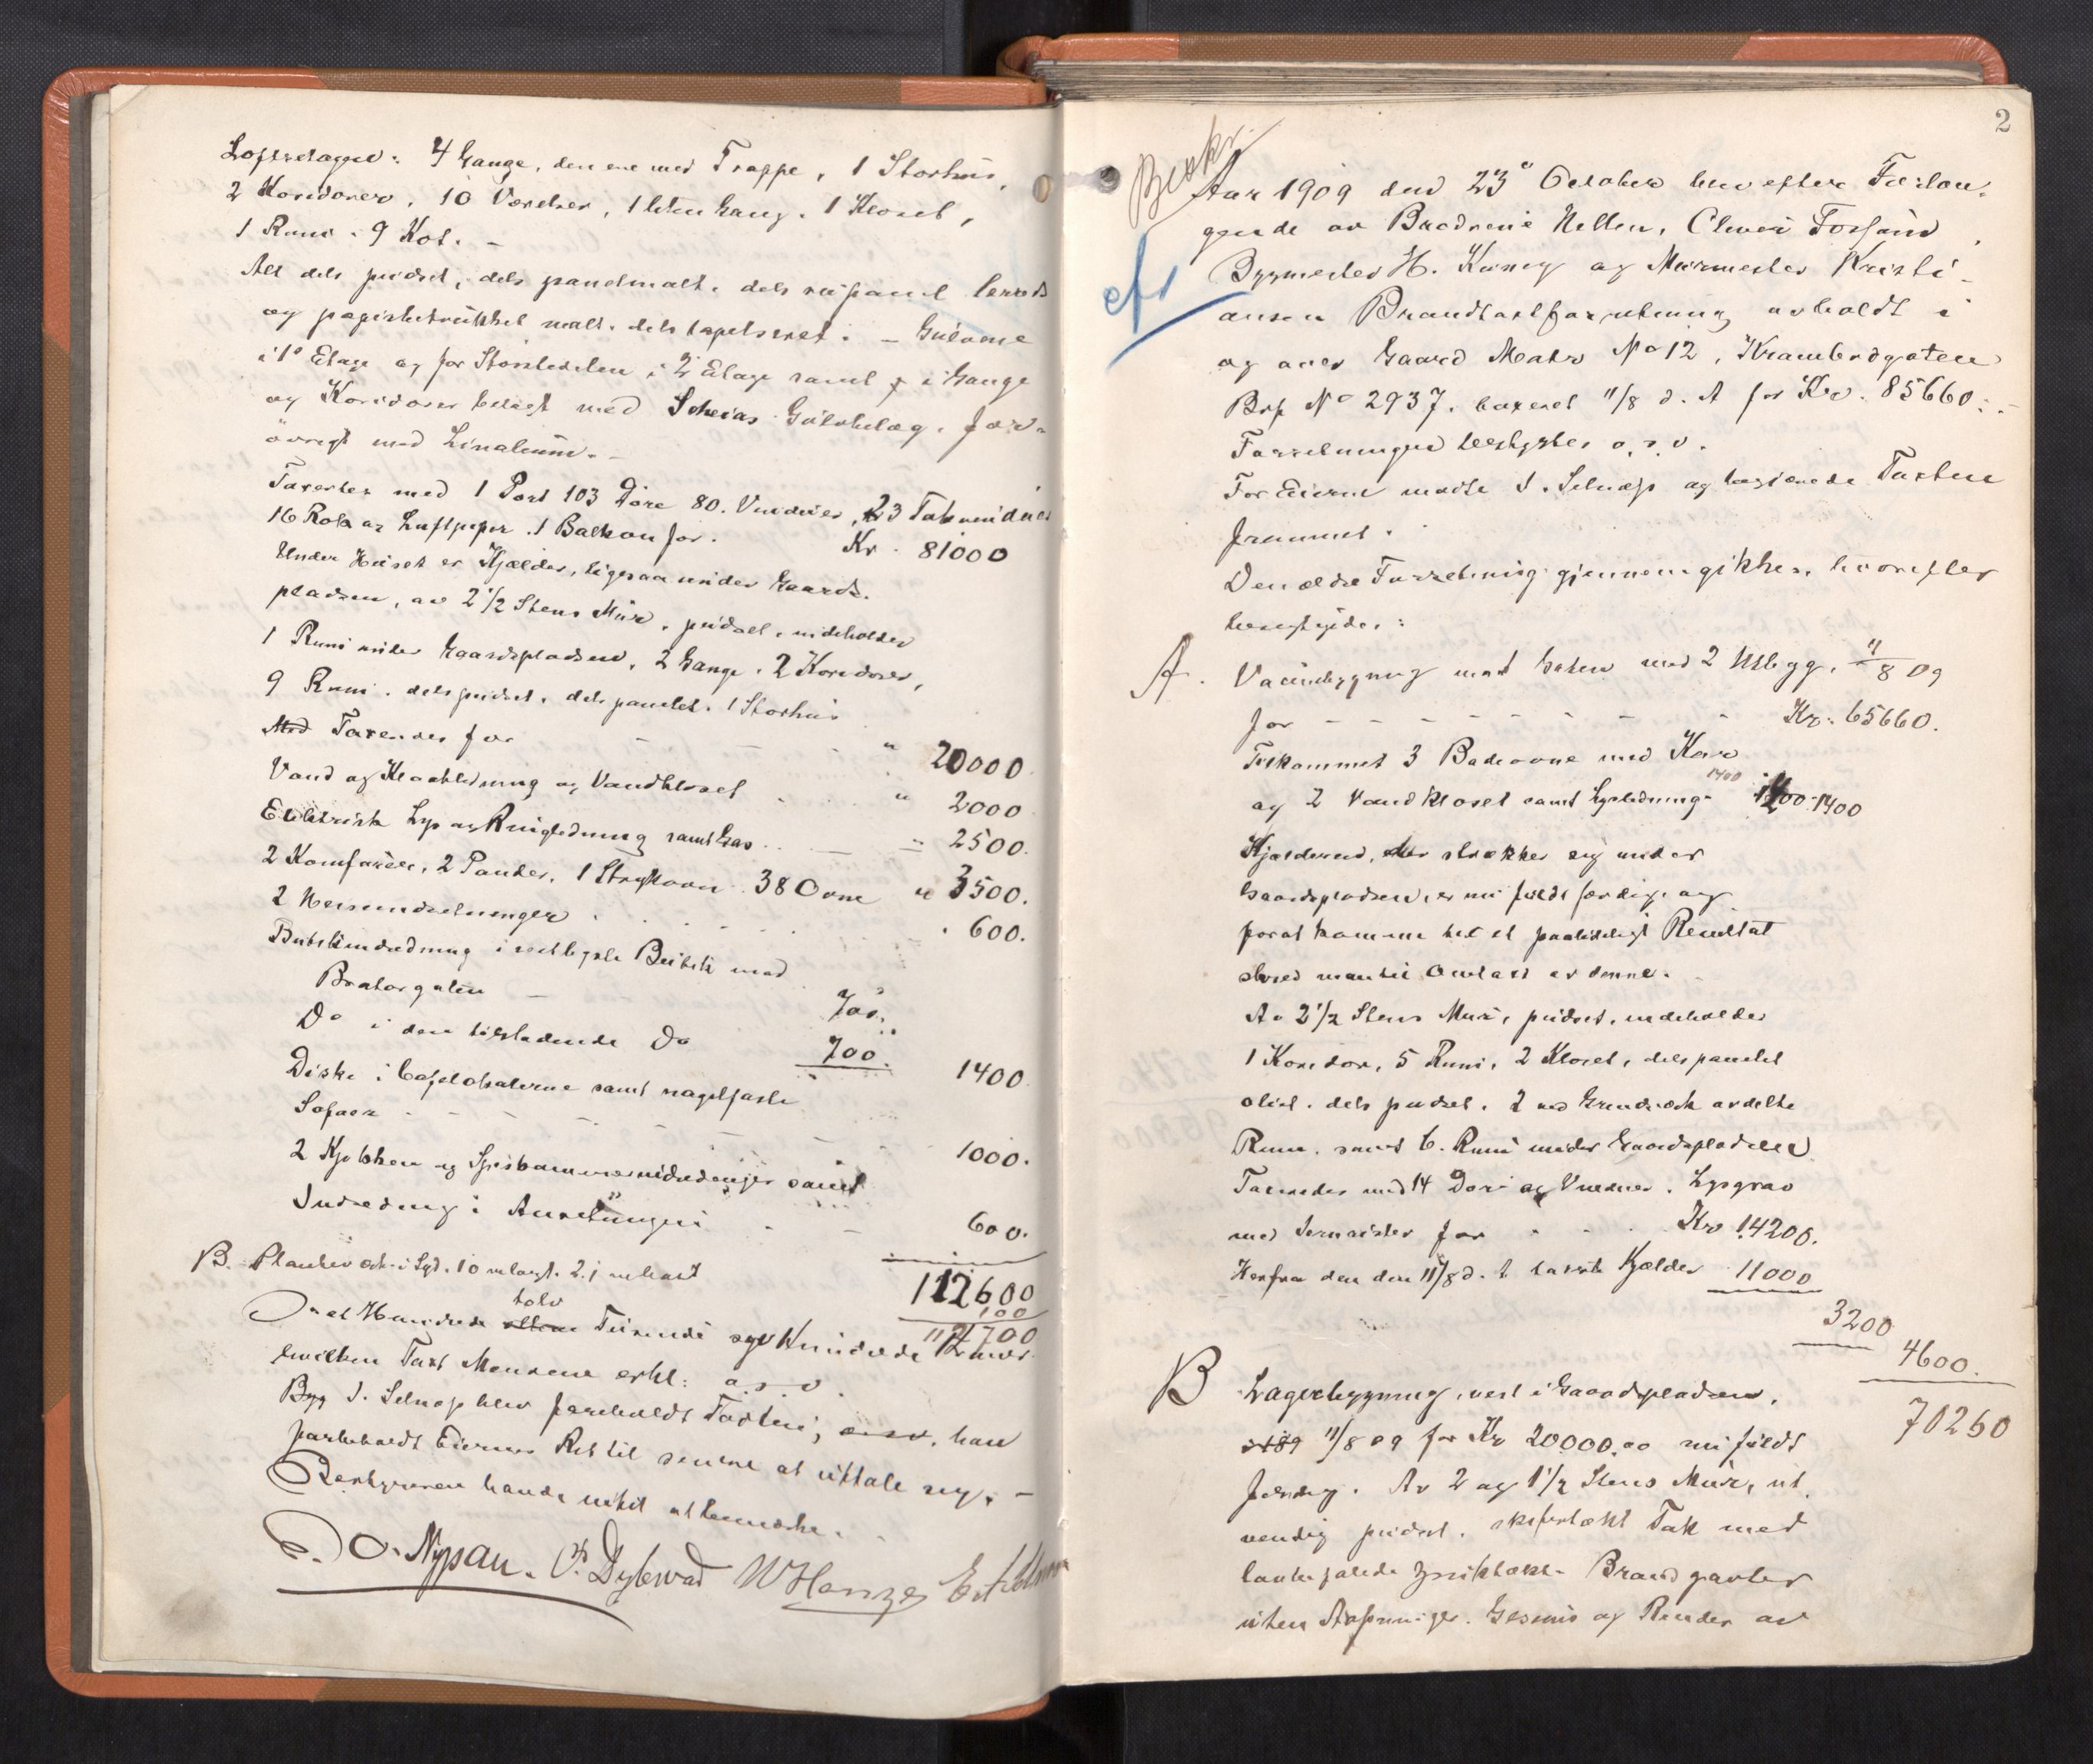 Loftsetagen: 4 Gange, den ene med Trappe, 1 Storhus,
2 Koridorer, 10 Værelser, 1 liten Gang. 1 Kloset,
1 Rum. 9 Kot. -
Alt dels pudset, dels panelmalt, dels rupanel lerreds
og papirbetrukket malt. dels tapetseret. - Gulvene
i 1ᵒ Etage og for Størstedelen i 2' Etage samt i Gange
og Koridorer belagt med Scheias Gulvbelæg. for-
øvrigt med Linoleum. -
Taxertes med 1 Port 103 Døre 80. Vinduer, 23 Takvinduer
16 Rok og Luftpiper. 1 Balkon for. Kr. 81000
Under Huset er Kjælder, ligesaa under Gaards-
pladsen, av 2 1/2 Stens Mur, pudset, indeholder
1 Rum under Gaardspladsen, 2 Gange. 2 Koridorer,
9 Rum. dels pudset, dels panelet. 1 Storhus
Med Taxeres for " 20000
Vand og Kloakledning og Vandkloset " 2000
Elektrisk Lys og Ringledning samt Gas - " 2500.
2 Komfurer, 2 Pander, 1 Strykovn 38 Ovne " 3500.
2 Heisindretninger . 600.
Butikindredning i vestligste Butik mod
Bratørgaten - 700.
Dᵒ i den tilstødende Dᵒ 700. 1400
Diske i Cafelokalerne samt nagelfaste
Sofaer - - - 1000.
2 Kjøkken og Spiskammerindredninger samt
Indredning i Anretningen - 600.
112600
B. Plankev 10 m langt. 2.1 m høit 100
112700
Et Hundrede tolv Tusinde syv Hundrede Kroner
hvilken Taxt Mændene erkl: o.s.v.
Byg J. Selnæs blev foreholdt Taxten, han
forbeholdt Eiernes Ret til senere at uttale sig. -
Bestyreren havde intet at bemerke.
O. Nypan. P. Dybwad W Hanzes
2
Beskr.
Aar 1909 den 23' October blev efter Forlan-
gende av Brødrene Hellen,
Bygmester H. Kuney og Murmester Kristi-
ansen Brandtaxtforretning avholdt i
og over Gaard Matr Nᵒ 12, Krambodgaten
Brp Nᵒ 2937. taxeret 11/8 d. A for Kr. 85660:-
Forretningen bestyrtes o.s.v.
For Eierne møtte J. Selnæs og begjærede Taxten
fremmet.
Den ældre Forretning gjennemgikkes, hvorefter
besigtiges:
A. Vaaningsbygning mot Gaten med 2 Utbygg. 11/8 09
for - - - - - - - - Kr. 65660.
Tilkommet 3 Badeovne med Kar
og 2 Vandkloset samt Lysledning 1400
Kjælderen, der strækker sig under
Gaardspladsen, er nu fuldt færdig og
for at komme til et paalideligt Resultat
skred man til Omtaxt av denne.
Av 2 1/2 Stens Mur, pudset, indeholder
1 Koridor, 5 Rum, 2 Kloset, dels panelet
oliet. dels pudset. 2 ved Grindverk avdelte
Rum. samt 6. Rum under Gaardspladsen
Taxeredes med 14 Døre og Vinduer. Lysgrav
med Jernrister for . . . Kr 14200.
Herfra den den 11/8 d. A taxerte Kjælder 11000
3200
4600.
70260
B Lagerbygning, vest i Gaardspladsen.
11/8 09 for Kr 20000.00 nu fuldt
færdig. Av 2 og 1 1/2 Stens Mur, ut-
vendig pudset. skifertækt Tak med
zinktækt. Brandgavler
uten Aapninger. Gesims og Render av